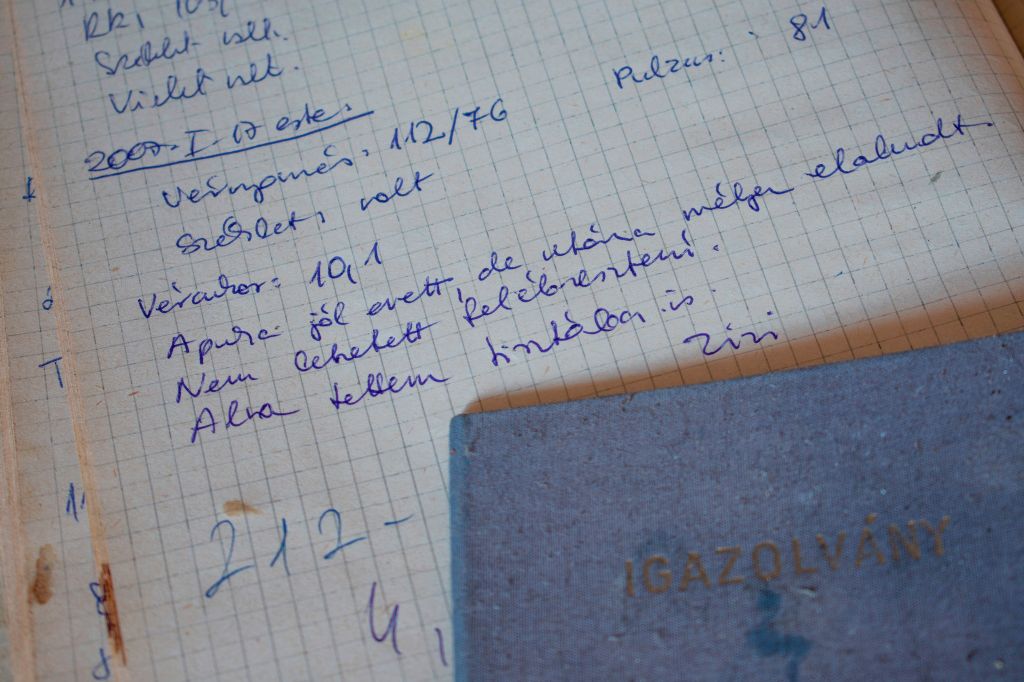 RR: 103/
Széklet volt.
Vizelet volt.
2007. I. 17 este.
Vérnyomás: 112/76 Pulzus: 81
Széklet: volt
Vércukor: 10,1
Apuka jól evett, de utána mélyen elaludt.
Nem lehetett felébreszteni.
Alva tettem tisztába is.
Zizi
212-
4,
IGAZOLVÁNY